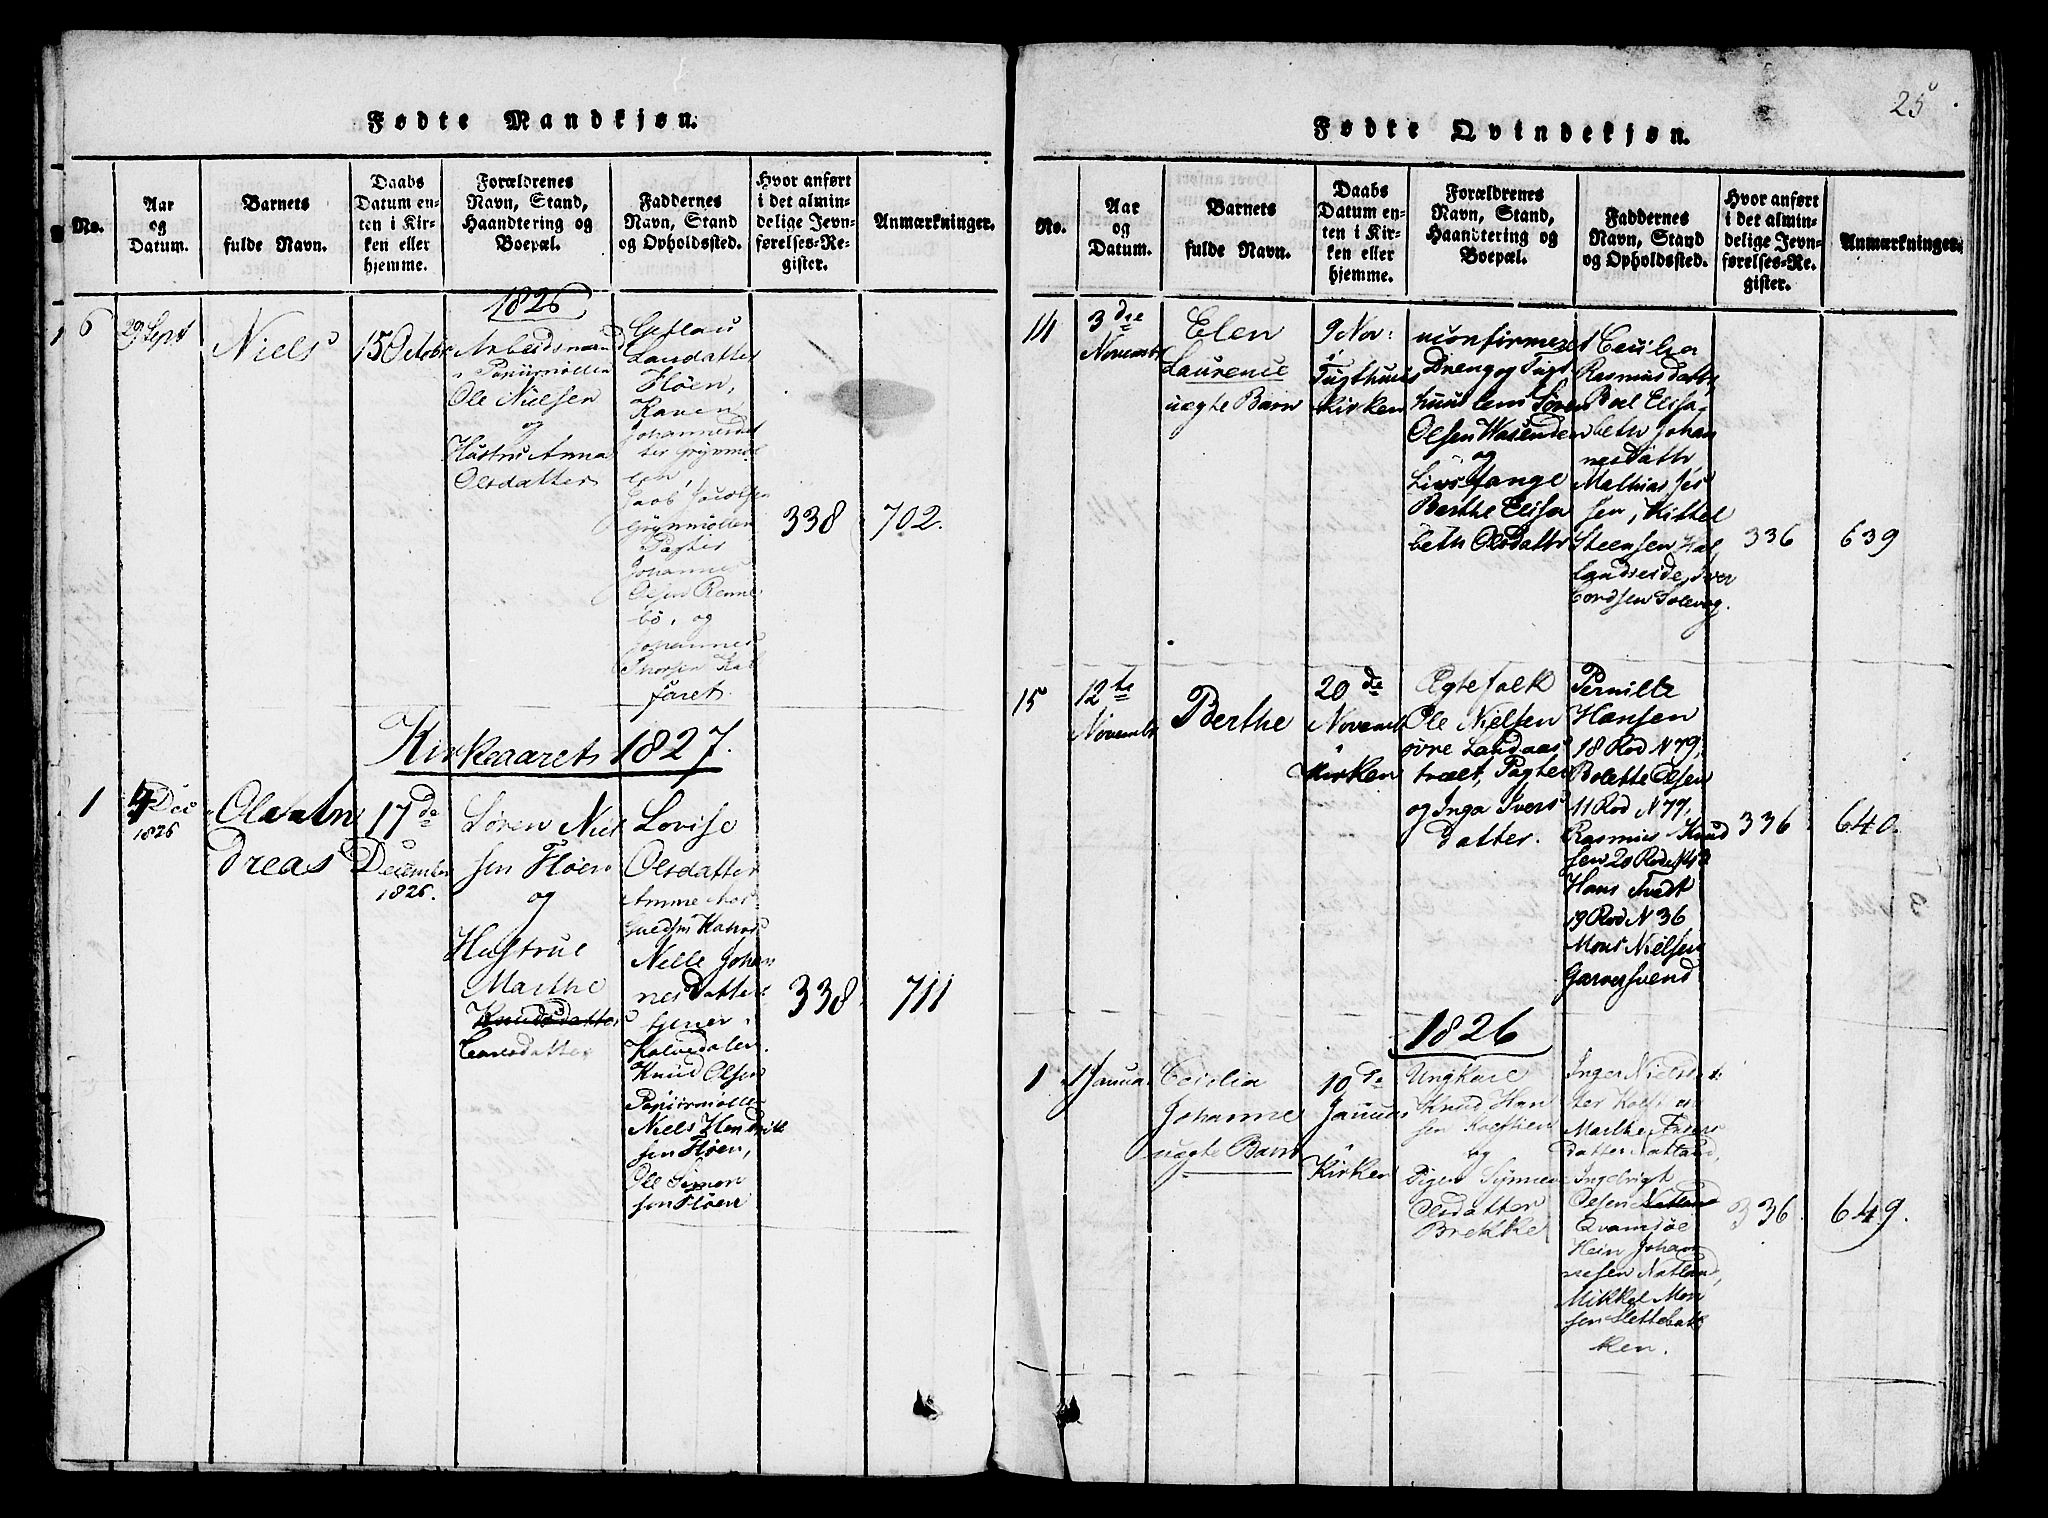 Fødte Mandkjøn.
No.
Aar
og
Datum.
Barnets
fulde Navn.
Daabs
Datum en-
ten i Kir-
ken eller
hjemme.
Forældrenes
Navn, Stand,
Haandtering og
Boepæl.
Faddernes
Navn, Stand
og Opholdssted.
Hvor anført
i det almin-
delige Jevn-
førelses-Re-
gister.
Anmærkninger.
1826
6
29 Sept
Niels
15 Octobr
Arbeidsmand
Papiirmøllen
Ole Nielsen
og
Hustru Anna
Olsdatter
Larsdatter
Fløen,
Karen
Johannesdat
ter Grynmøl
len,
Jacob Jacobsen
Grynmøllen
Pagter
Johannes
Olsen Renne
bø, og
Johannes
Thorsen Kal
faret.
338
702.
Kirkeaarets 1827.
1
4 Dec
1826
Ole An
dreas
17 de
December
1826.
Søren Niel
sen Fløen
og
Hustrue
Marthe
Knudsdatter
Larsdatter
Lovise
Olsdatter
Amme hos
Nelle Johan
nesdatter
tjener
Kalvedalen
Knud Olsen
Papiirmøllen
Niels Hendrik
sen Fløen,
Ole Simon
sen Fløen
338
711
25
Fødte Qvindekjøn.
No.
Aar
og
Datum.
Barnets
fulde Navn.
Daabs
Datum en-
ten i Kir-
ken eller
hjemme.
Forældrenes
Navn, Stand,
Haandtering og
Boepæl.
Faddernes
Navn, Stand
og Opholdssted.
Hvor anført
i det almin-
delige Jevn-
førelses-Re-
gister.
Anmærkninger.
14
3 die
Novembr
Elen
Laurence
uægte Barn
9 Nov:
i
Tugthuus
Kirken
uconfirmeret
Dreng og Tugt
huuslem Søren
Olsen Wasenden
og
Livsfange
Berthe Elisa
beth Olsdattr
Cecilia
Rasmusdattr,
Boel Elisa
beth Johan
nesdattr
Mathias
sen, Kittel
Steensen Hal
landseide, Iver
Cordsen Solevog.
336
639
15
12 te
Novembr
Berthe
20 de
Novemb
i
Kirken
Ægtefolk
Ole Nielsen
øvre Landaas
træet, Pagter
og Inga Ivers
datter.
Pernille
Hansen
18 Rod N 79,
Bolette Olsen
11 Rod N 77,
Rasmus Knud
sen 20 Rode N
Hans Tvedt
19 Rod N 36
Mons Nielsen
Garversvend
336
640.
1826
1
1 Januar
Cecilia
Johanne
uægte Barn
10 de
Januar
i
Kirken
Ungkarl
Knud Han
sen Kolstien
og
Pigen Synneve
Olsdatter
Brekke
Inger Nielsdat
ter
Marthe Ivers
datter Natland,
Ingebrigt
Olsen Natland
Qvamsøe
Hein Johan
nesen Natland,
Mikkel Mon
sen Slettebak
ken.
336
649.